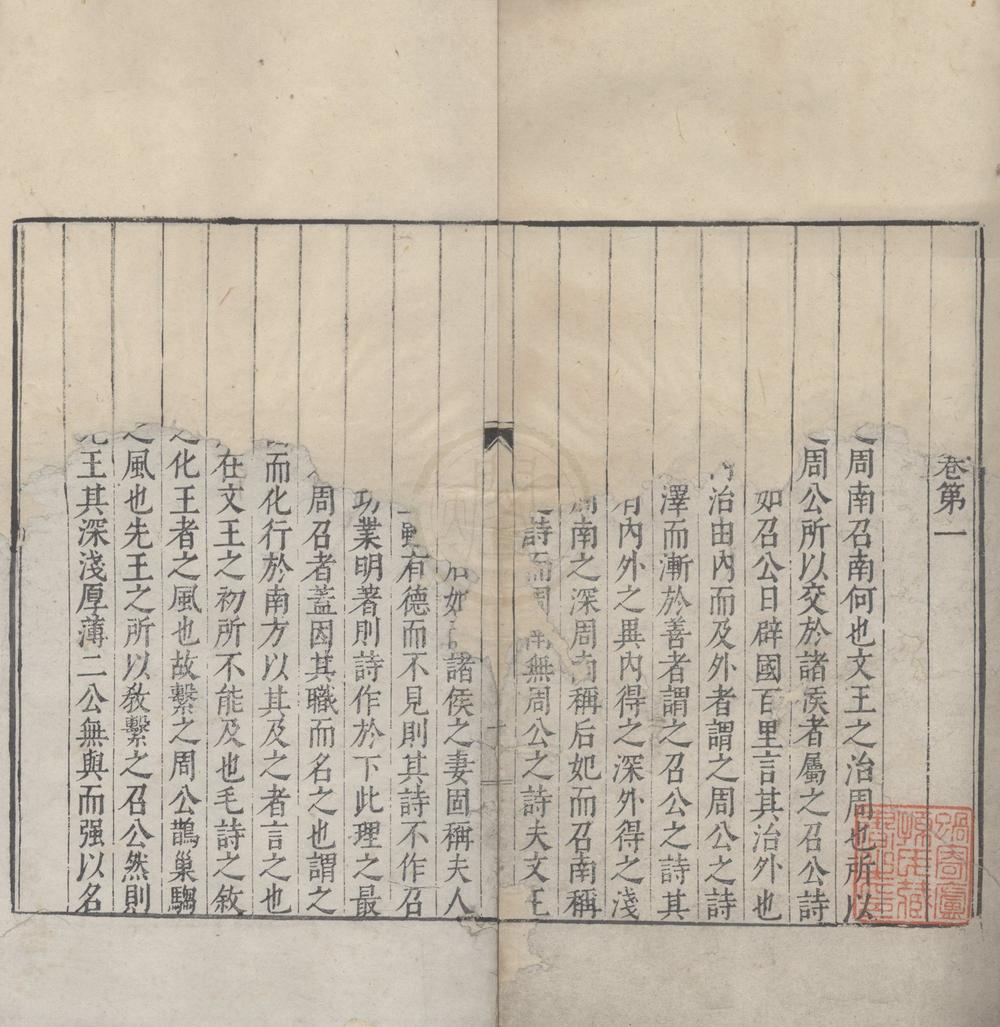 卷第一
周南召南何也文王之治周也所以
周公所以交於諸侯者屬之召公詩
如召公日辟國百里言其治外也
治由內而及外者謂之周公之詩
澤而漸於善者謂之召公之詩其
有內外之異內得之深外得之淺
南之深周南稱后妃而召南稱
詩而周南無周公之詩夫文王
諸侯之妻固稱夫人
有德而不見則其詩不作召
功業明著則詩作於下此理之最
周召者蓋因其職而名之也謂之
而化行於南方以其及之者言之也
在文王之初所不能及也毛詩之敘
之化王者之風也故繫之周公鵲巢騶
之風也先王之所以教繫之召公然則
王其深淺厚薄二公無與而强以名